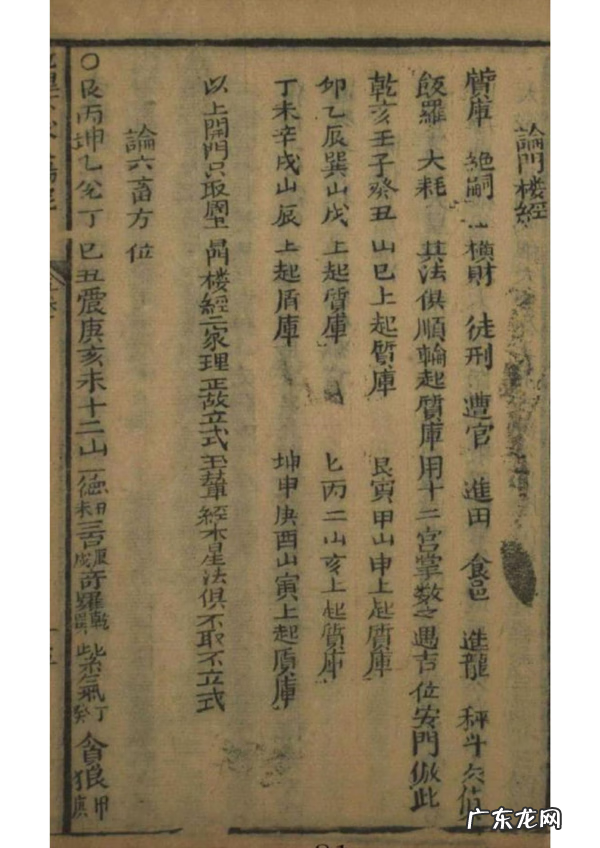 論門楼經
質庫 絶嗣 橫財 徒刑 遭官 進田 食邑 進龍 秤斗
飯羅 大耗 其法俱順輪起質庫用十二宮掌數之遇吉位安門倣此
乾亥壬子癸丑山巳上起質庫 艮寅甲山申上起質庫
卯乙辰巽山戌上起質庫 巳丙二山亥上起質庫
丁未辛戌山辰上起質庫 坤申庚酉山寅上起質庫
以上開門只取 門楼經二家理正故立式玉輦經木星法俱不取不立式
論六畜方位
〇艮丙坤乙兊丁巳丑震庚亥未十二山 奇羅 紫氣丁癸貪狼甲庚
广东龙网